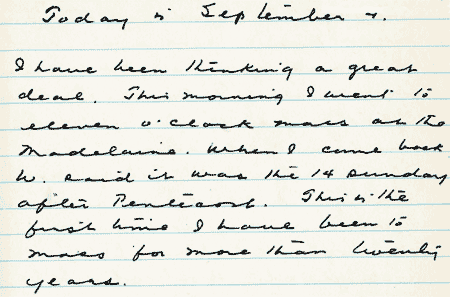 Today is September 4.
I have been thinking a great
deal. This morning I went to
eleven o'clock mass at the
Madelaine. When I came back
W. said it was the 14 Sunday
after Pentecost. This is the
first time I have been to
mass for more than twenty
years.